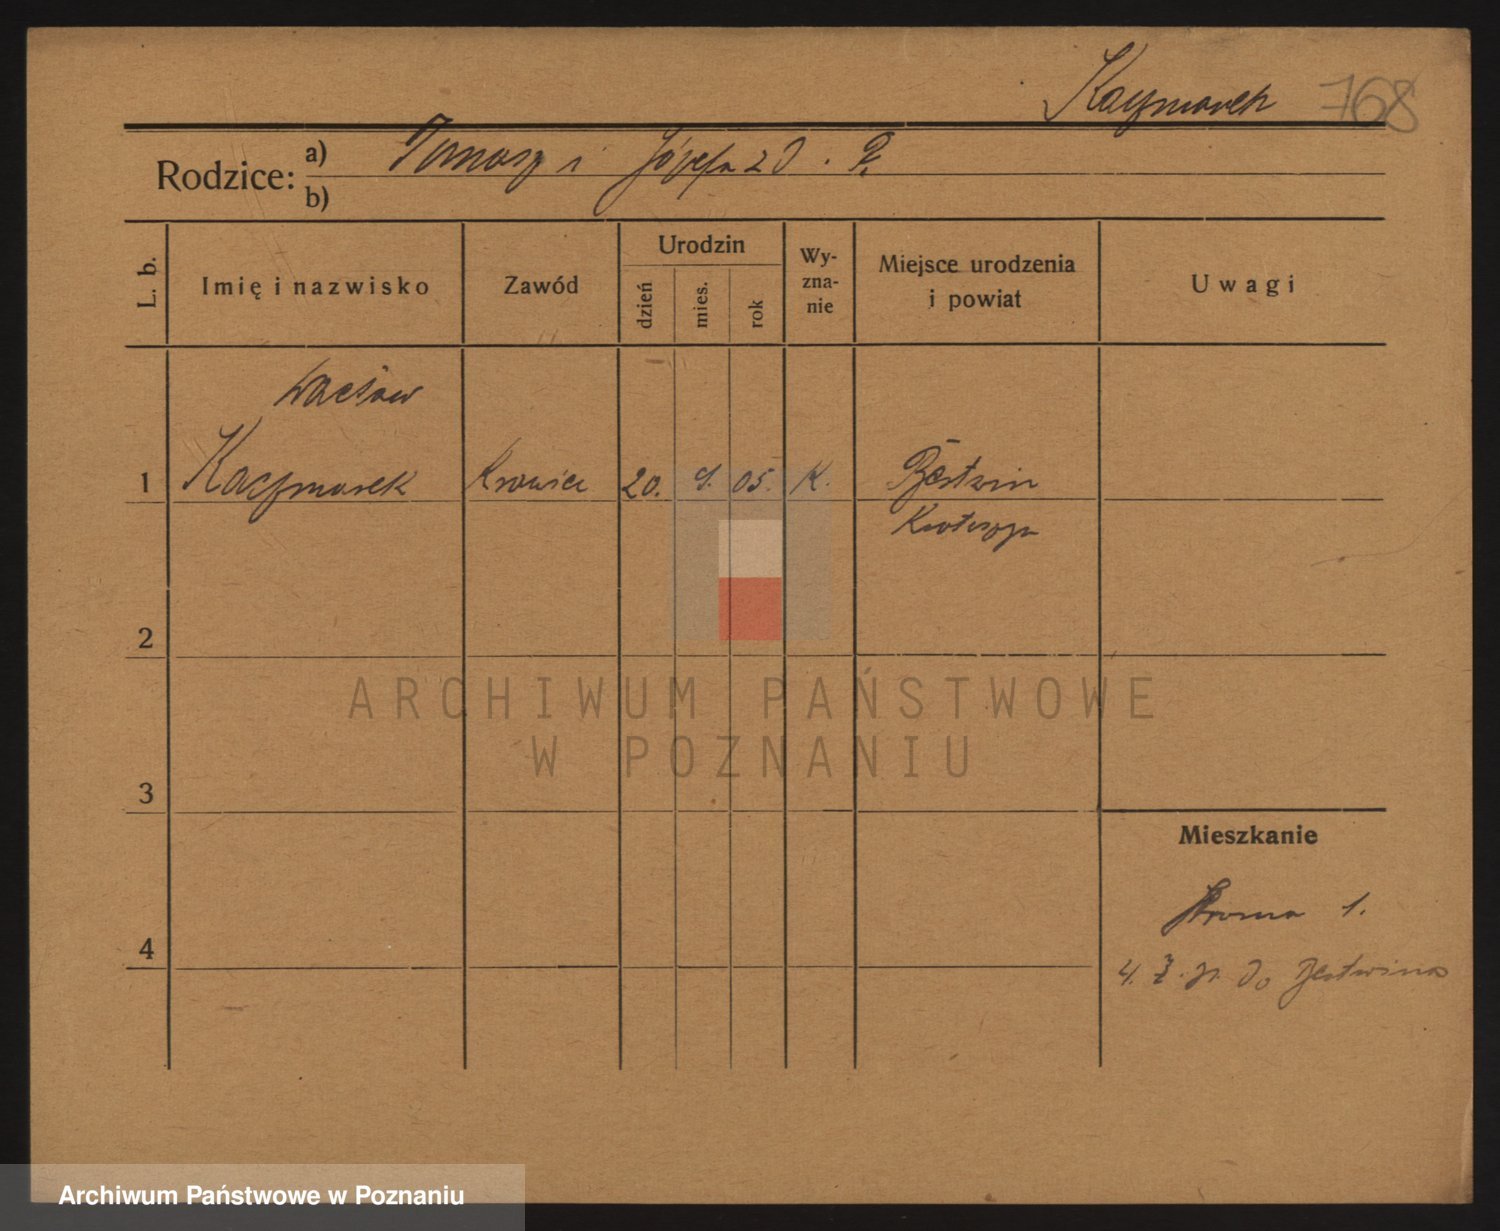 Kaczmarek 768
Rodzice: a) Tomasz i Józefa z d. P.
b)
L. b.
Imię i nazwisko
Zawód
Urodzin
dzień
mies.
rok
Wy-
zna-
nie
Miejsce urodzenia
i powiat
Uwagi
Wacław
1 Kaczmarek Krawiec 20. 9. 05. K. Bestwin
Krotoszyn
2
3
4
Mieszkanie
Stroma 1.
do Bestwina
ARCHIWUM PAŃSTWOWE
W POZNANIU
Archiwum Państwowe w Poznaniu